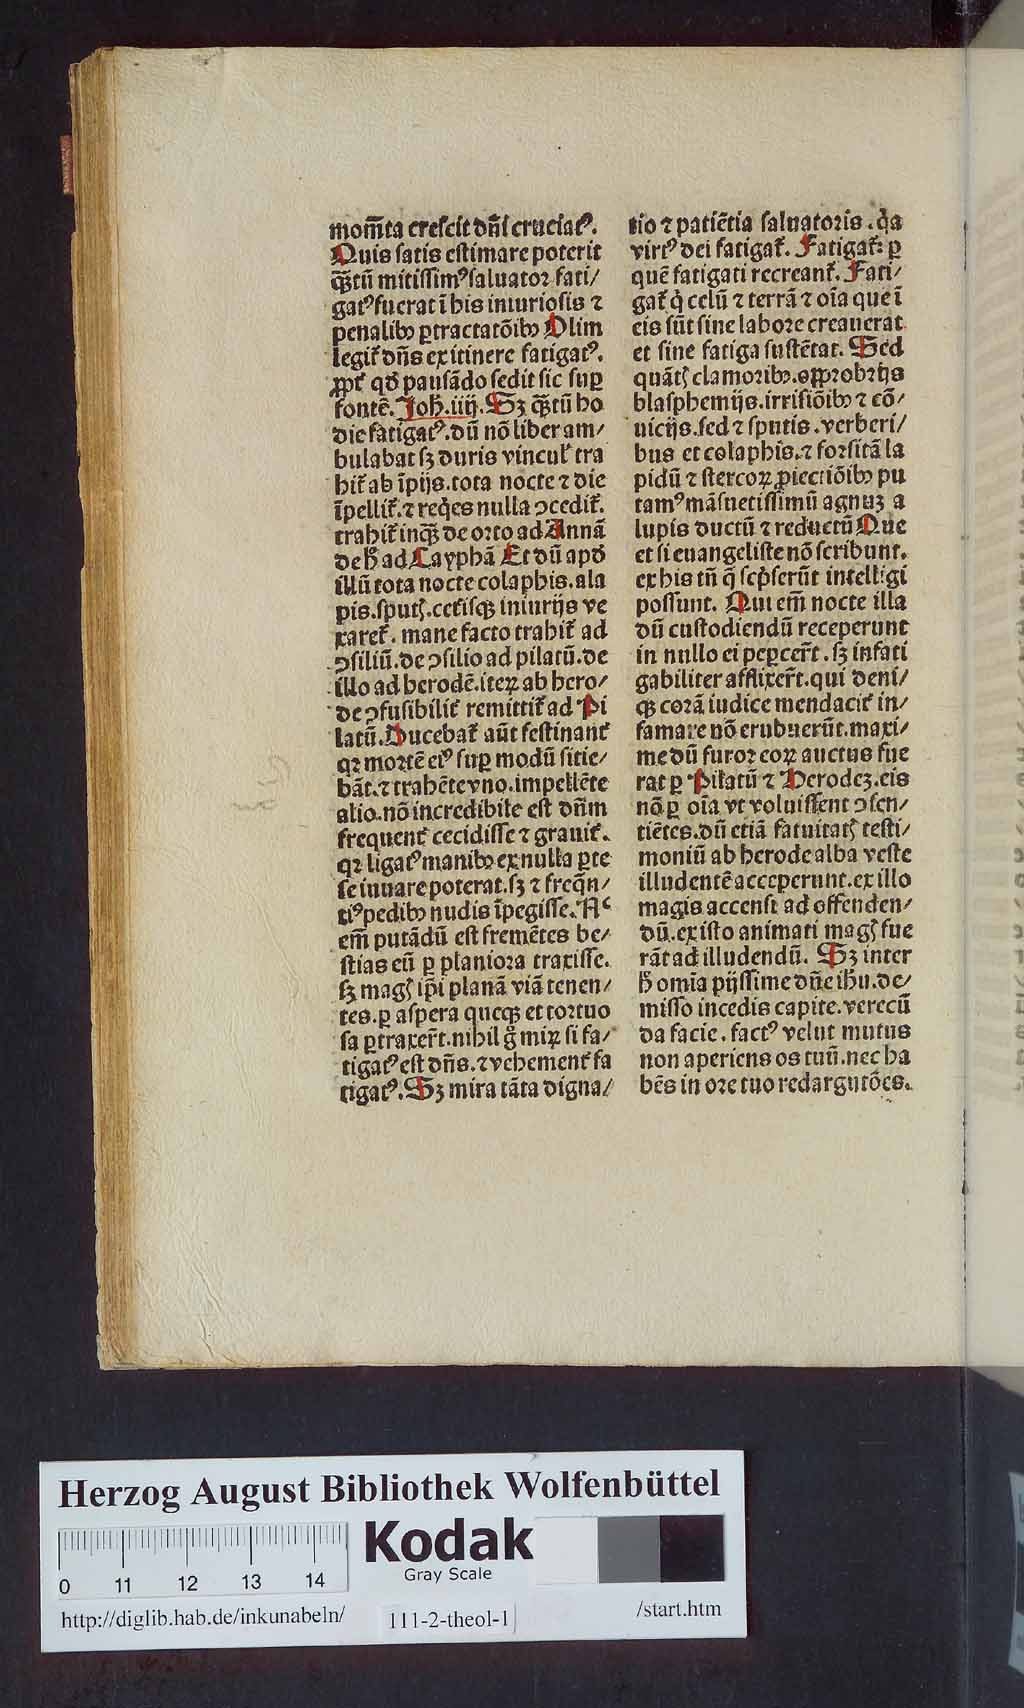 mom̄ta crescit dn̄i cruciatꝰ.
Quis satis estimare poterit
qȝtū mitissimꝰ saluator fati/
gatꝰ fuerat ī his iniuriosis ⁊
penalibꝰ ꝑtractatōibꝰ Olim
legit᷑ dn̄s ex itinere fatigatꝰ.
ꝓpt᷑ qd̄ pausādo sedit sic suꝑ
fontē. Joh̄. iiij. Sȝ qȝtū ho
die fatigatꝰ. dū nō liber am/
bulabat sȝ duris vincul᷑ tra
hit᷑ ab īpijs. tota nocte ⁊ die
īpellit᷑. ⁊ req̇es nulla ↄcedit᷑.
trahit᷑ inqȝ de orto ad Annā
de h̄ ad Cayphā Et dū apd̄
illū tota nocte colaphis. ala
pis. sputꝭ. cet᷑isqȝ iniurijs ve
xaret᷑. mane facto trahit᷑ ad
ↄsiliū. de ↄsilio ad pilatū. de
illo ad herodē. iteꝝ ab hero/
de ↄfusibilit᷑ remittit᷑ ad Pi
latū. Ducebat᷑ aūt festinant᷑
qꝛ mortē eiꝰ suꝑ modū sitie/
bāt. ⁊ trahēte vno. impellēte
alio. nō incredibile est dn̄m
frequent᷑ cecidisse ⁊ grauit᷑.
qꝛ ligatꝰ manibꝰ ex nulla ꝑte
se iuuare poterat. sȝ ⁊ freq̄n/
tiꝰ pedibꝰ nudis īpegisse. Nᶜ
em̄ putādū est fremētes be/
stias eū ꝑ planiora traxisse.
sȝ magꝭ ip̄i planā viā tenen/
tes. ꝑ aspera queqȝ et tortuo
sa ꝑtraxer̄t. nihil g̊ miꝝ si fa/
tigatꝰ est dn̄s. ⁊ vehement᷑ fa
tigatꝰ. Sȝ mira tāta digna/
tio ⁊ patiētia saluatoris. q̇a
virtꝰ dei fatigat᷑. Fatigat᷑: ꝑ
quē fatigati recreant᷑. Fati/
gat᷑ q̇ celū ⁊ terrā ⁊ oīa que ī
eis sūt sine labore creauerat
et sine fatiga sustētat. Sed
quātꝭ clamoribꝰ. opprobrijs
blasphemijs. irrisiōibꝰ ⁊ cō/
uicijs. sed ⁊ sputis. verberi/
bus et colaphis. ⁊ forsitā la
pidū ⁊ stercoꝝ ꝓiectiōibꝰ pu
tamꝰ māsuetissimū agnuȝ a
lupis ductū ⁊ reductū Que
et si euangeliste nō scribunt.
ex his tn̄ q̄ scṗserūt intelligi
possunt. Qui em̄ nocte illa
dū custodiendū receperunt
in nullo ei peꝑcer̄t. sȝ infati
gabiliter afflixer̄t. qui deni/
qȝ corā iudice mendacit᷑ in/
famare nō erubuerūt. maxi/
me dū furor eoꝝ auctus fue
rat ꝑ Pilatū ⁊ Herodeȝ. eis
nō ꝑ oīa vt voluissent ↄsen/
tiētes. dū etiā fatuitatꝭ testi/
moniū ab herode alba veste
illudentē acceperunt. ex illo
magis accensi ad offenden/
dū. ex isto animati magꝭ fue
rāt ad illudendū. Sȝ inter
h̄ omīa pijssime dn̄e ihū. de/
misso incedis capite. verecū
da facie. factꝰ velut mutus
non aperiens os tuū. nec ha
bēs in ore tuo redargutōes.
Herzog August Bibliothek Wolfenbüttel
Kodak
Gray Scale
0 11 12 13 14
http://diglib.hab.de/inkunabeln/ 111-2-theol-1 /start.htm